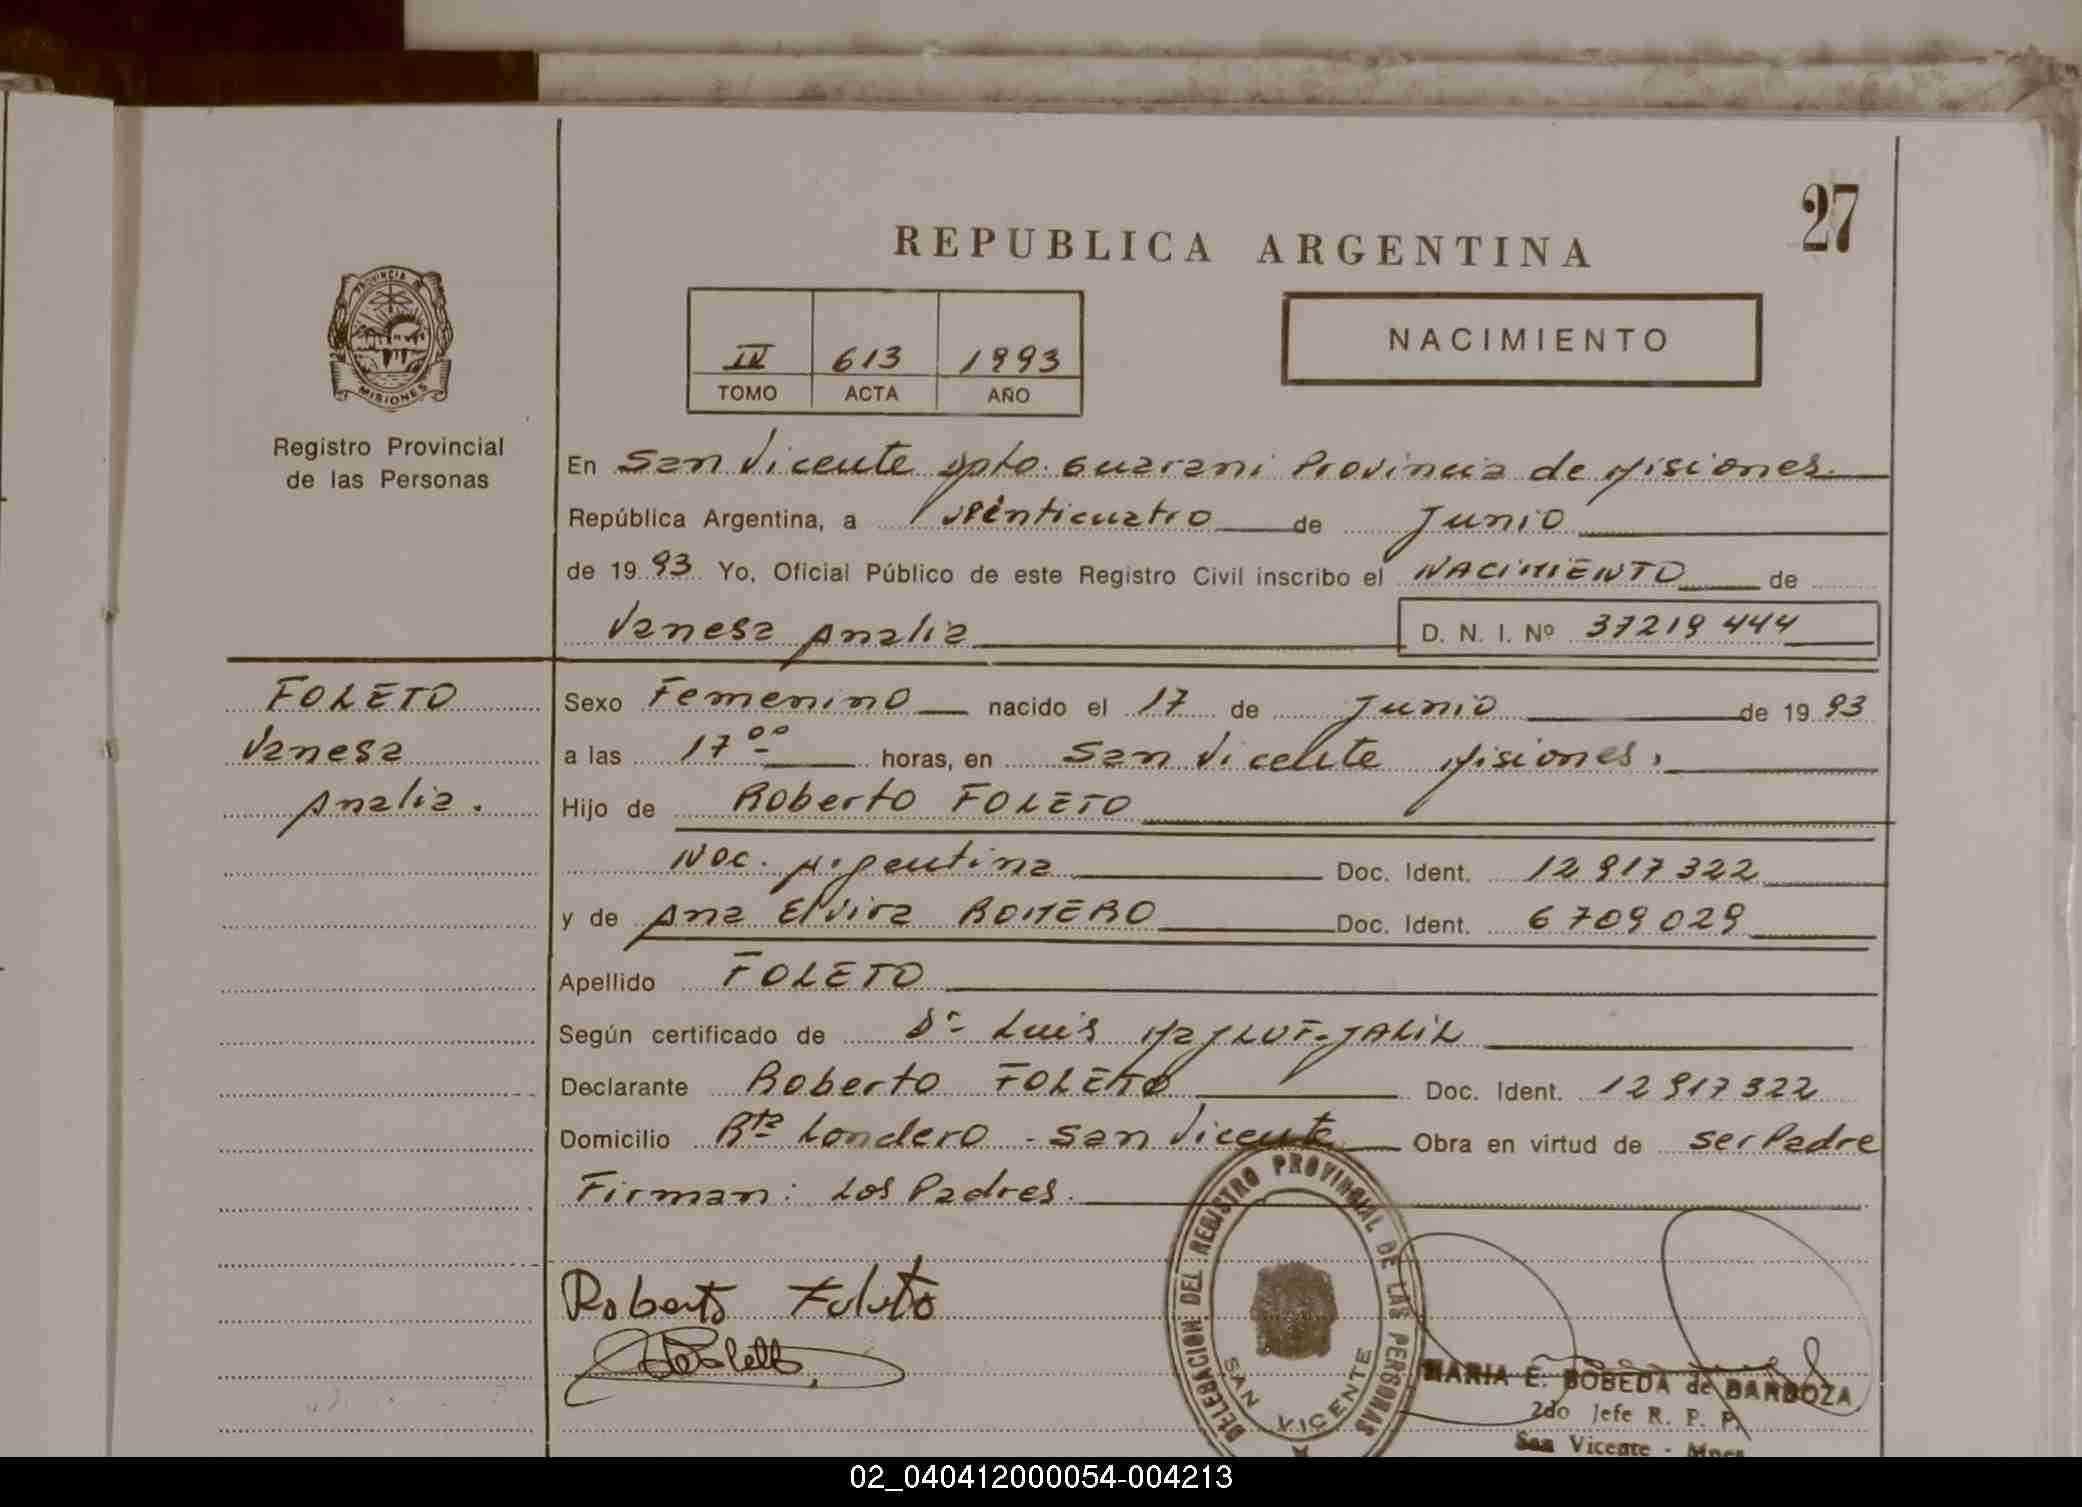 27
REPUBLICA ARGENTINA
PROVINCIA DE
MISIONES
Registro Provincial
de las Personas
IV 613 1993
TOMO ACTA AÑO
NACIMIENTO
En San Vicente Dpto. Guarani Provincia de Misiones.
República Argentina, a veinticuatro de Junio
de 1993 Yo, Oficial Público de este Registro Civil inscribo el NACIMIENTO de
Vanesa Analia D. N. I. Nº 37219444
FOLETO
Vanesa
Analia.
Sexo Femenino nacido el 17 de Junio de 1993
a las 17 00 horas, en San Vicente Misiones,
Hijo de Roberto FOLETO
Nac. Argentina Doc. Ident. 12917322
y de Ana Elvira ROMERO Doc. Ident. 6709029
Apellido FOLETO
Según certificado de Dr Luis JALIL
Declarante Roberto FOLETO Doc. Ident. 12917322
Domicilio Rta Londero - San Vicente Obra en virtud de ser Padre
Firman: Los Padres.
Roberto Foleto
DELEGACION DEL REGISTRO PROVINCIAL DE LAS PERSONAS
SAN VICENTE
MARIA E. BOBEDA de BARBOZA
2do Jefe R. P. P.
San Vicente - Mnes.
02_040412000054-004213